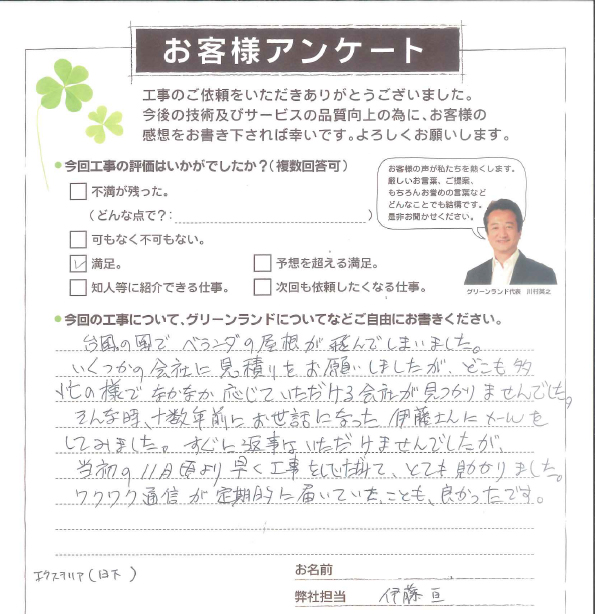 お客様アンケート
工事のご依頼をいただきありがとうございました。
今後の技術及びサービスの品質向上の為に、お客様の
感想をお書き下されば幸いです。よろしくお願いします。
●今回工事の評価はいかがでしたか?(複数回答可)
不満が残った。
(どんな点で?: )
可もなく不可もない。
満足。
予想を超える満足。
知人等に紹介できる仕事。
次回も依頼したくなる仕事。
お客様の声が私たちを動くします。
厳しいお言葉、ご提案、
もちろんお誉めの言葉など
どんなことでも結構です。
是非お聞かせください。
グリーンランド代表 川村英之
●今回の工事について、グリーンランドについてなどご自由にお書きください。
台風の風で ベランダの屋根が飛んでしまいました。
いくつかの会社に見積りをお願いしましたが、どこも多
忙の様で なかなか応じていただける会社が見つかりませんでした。
そんな時、十数年前にお世話になった伊藤さんにメールを
してみました。すぐに返事はいただけませんでしたが、
当初の11月頃より早く工事をしていただけて、とても助かりました。
ワクワク通信が定期的に届いていたことも、良かったです。
エクステリア(日下)
お名前
弊社担当 伊藤 亘